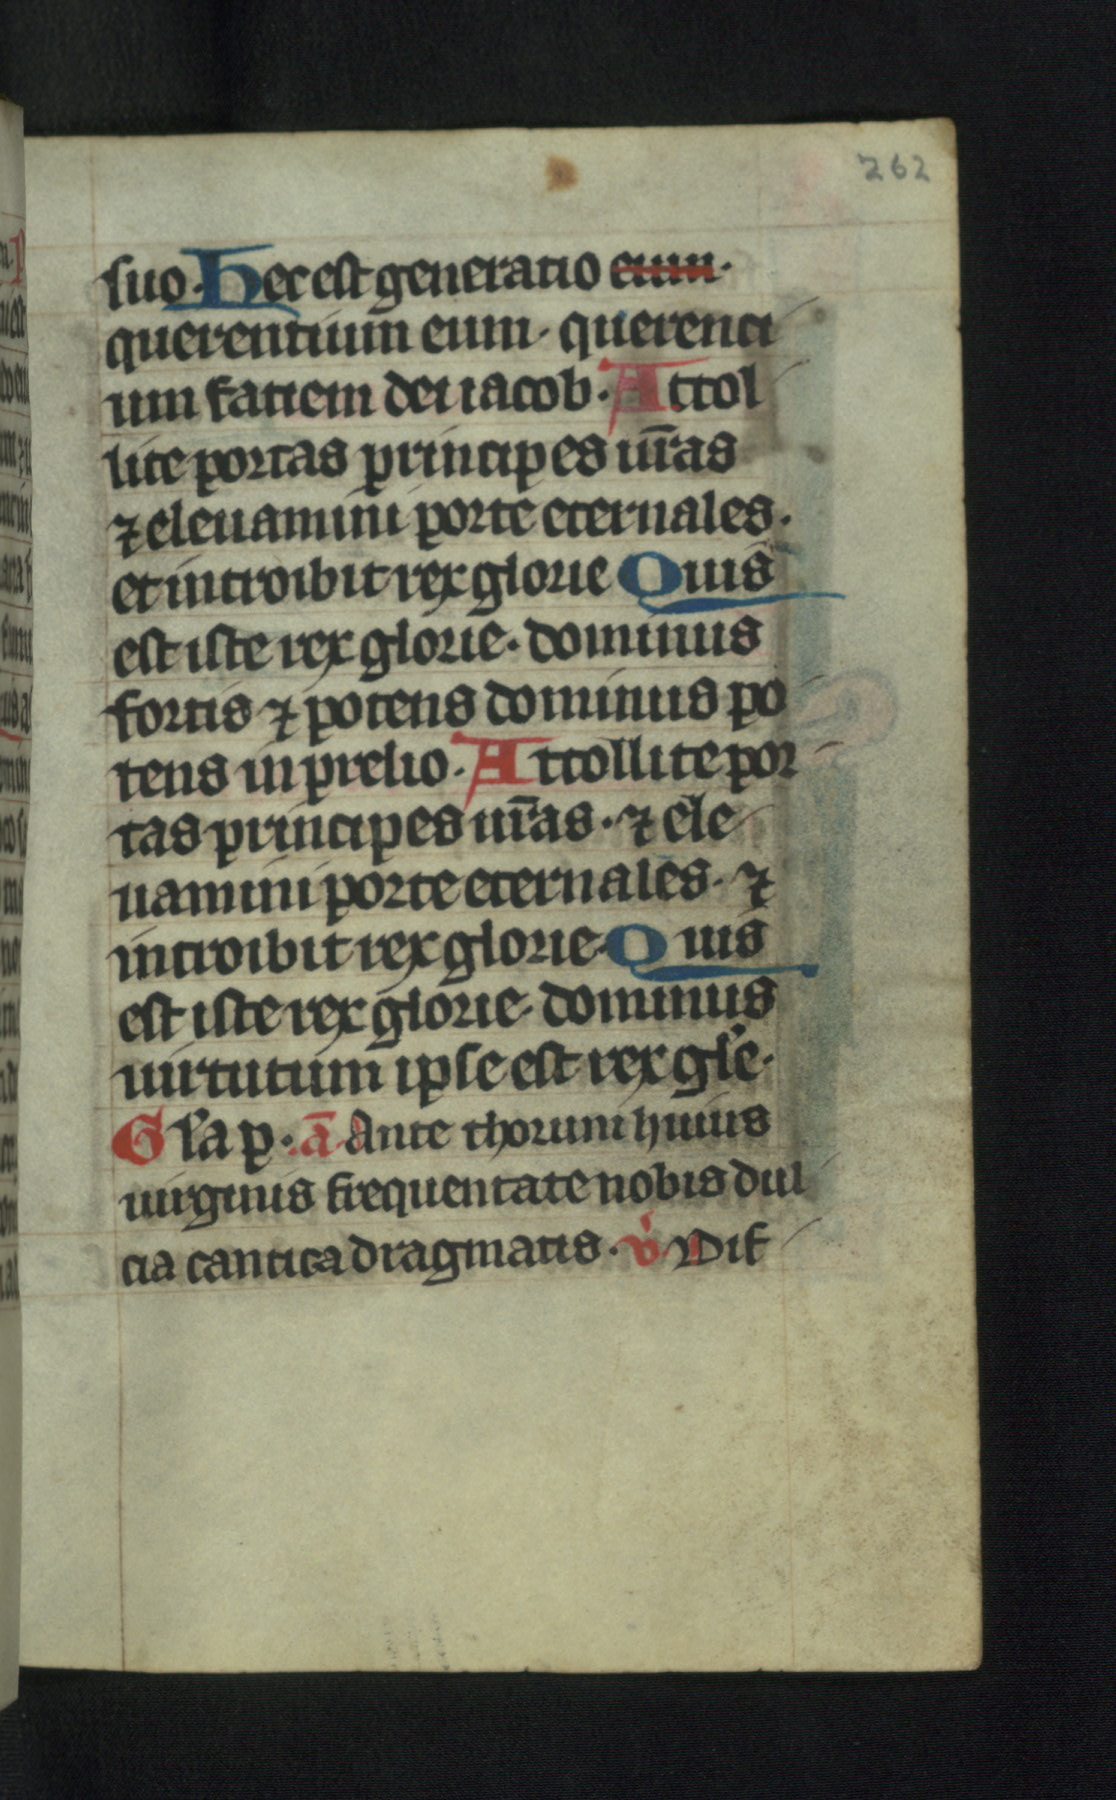 262
suo. Hec est generatio eum.
querentium eum. querenti
um faciem dei iacob. Attol
lite portas principes ur̄as
⁊ eleuamini porte eternales.
et introibit rex glorie Quis
est iste rex glorie. dominus
fortis ⁊ potens dominus po
tens in prelio. Attollite por
tas principes ur̄as. ⁊ ele
uamini porte eternales. ⁊
introibit rex glorie Quis
est iste rex glorie. dominus
uirtutum ipse est rex gl'e.
Gl'a p. ā Ante thorum huius
uirginis frequentate nobis dul
cia cantica dragmatis. v̇ Dif